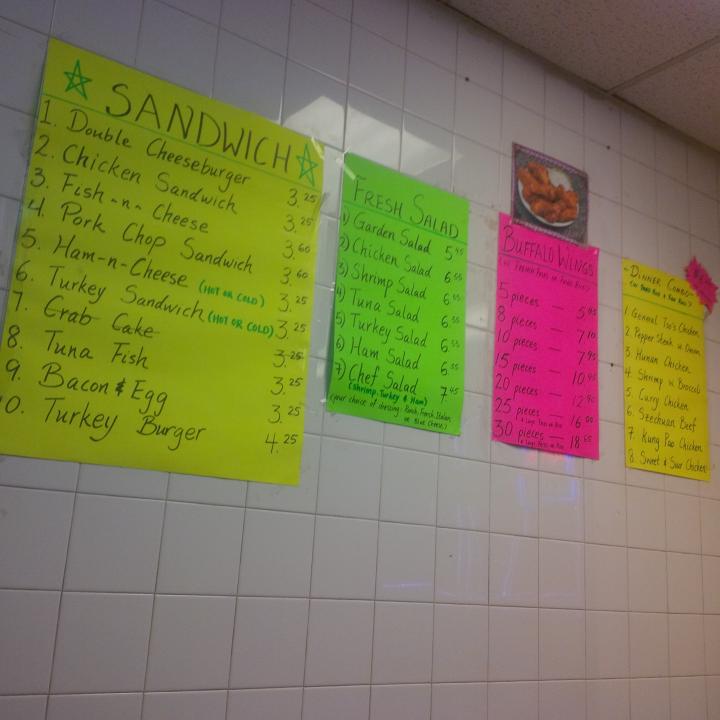 SANDWICH
1. Double Cheeseburger 3.25
2. Chicken Sandwich 3.25
3. Fish-n-Cheese 3.60
4. Pork Chop Sandwich 3.60
5. Ham-n-Cheese (HOT OR COLD) 3.25
6. Turkey Sandwich (HOT OR COLD) 3.25
7. Crab Cake 3.25
8. Tuna Fish 3.25
9. Bacon & Egg 3.25
10. Turkey Burger 4.25
FRESH SALAD
1) Garden Salad 5.45
2) Chicken Salad 6.55
3) Shrimp Salad 6.55
4) Tuna Salad 6.55
5) Turkey Salad 6.55
6) Ham Salad 6.55
7) Chef Salad 7.45
(Shrimp, Turkey & Ham)
(your choice of dressing: Ranch, French, Italian,
or Blue Cheese)
BUFFALO WINGS
5 pieces —
8 pieces —
10 pieces — 7.95
15 pieces — 10.95
20 pieces — 12.90
25 pieces — 16.00
30 pieces — 18.55
-DINNER COMBO-
1. General Tso's Chicken
2. Pepper Steak w. Onion
3. Hunan Chicken
4. Shrimp w. Broccoli
5. Curry Chicken
6. Szechuan Beef
7. Kung Pao Chicken
8. Sweet & Sour Chicken